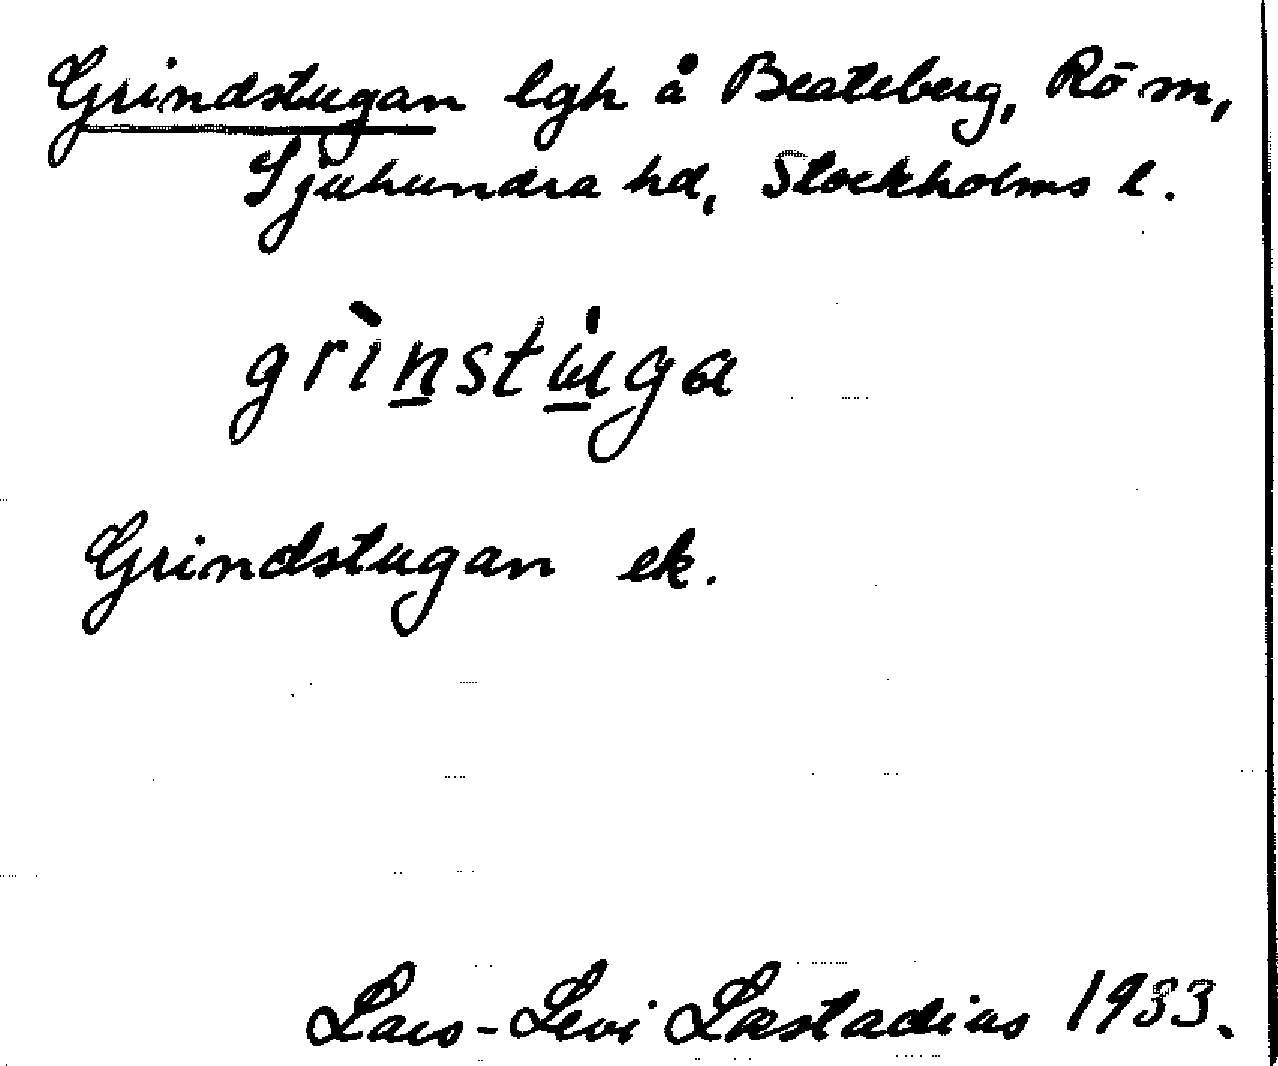 Grindstugan lgh å Beateberg, Rö sn,
Sjuhundra hd, Stockholms l.
grìnstu̇ga
Grindstugan ek.
Lars-Levi Læstadius 1933.